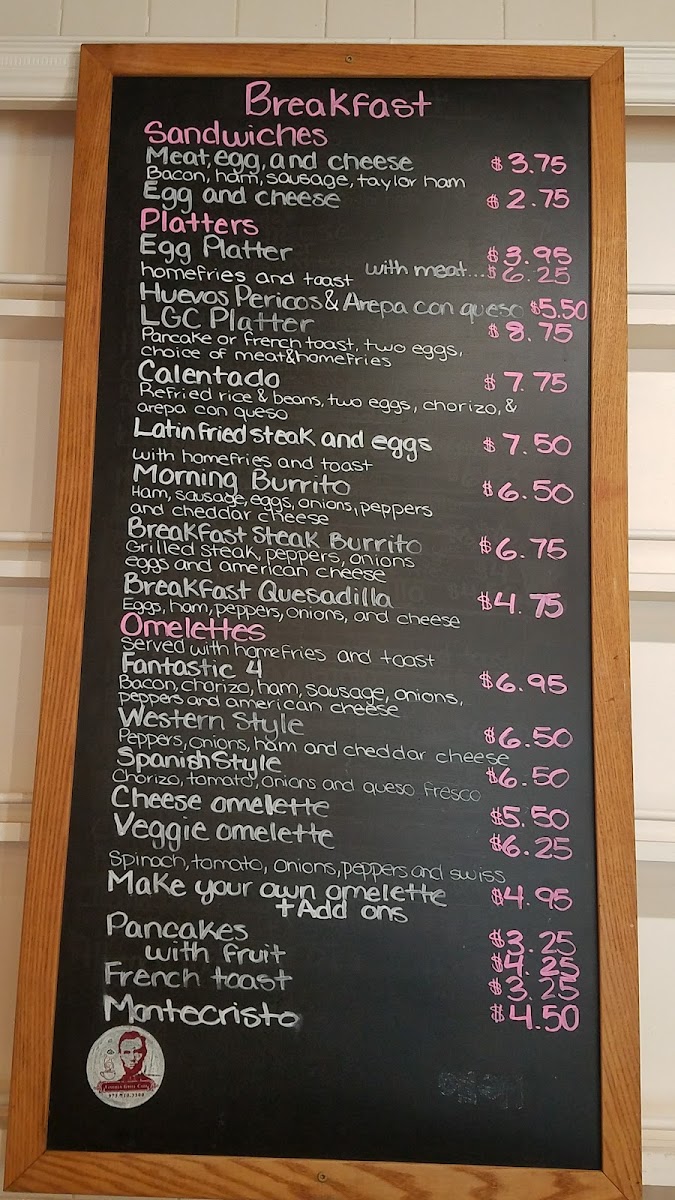 Breakfast
Sandwiches
Meat, egg, and cheese $3.75
Bacon, ham, sausage, taylor ham
Egg and cheese $2.75
Platters
Egg Platter $3.95
homefries and toast with meat...$6.25
Huevos Pericos & Arepa con queso $5.50
LGC Platter $8.75
Pancake or french toast, two eggs,
choice of meat&homefries
Calentado $7.75
Refried rice & beans, two eggs, chorizo, &
arepa con queso
Latin fried steak and eggs $7.50
with homefries and toast
Morning Burrito $6.50
Ham, sausage, eggs, onions, peppers
and cheddar cheese
Breakfast Steak Burrito $6.75
Grilled steak, peppers, onions
eggs and american cheese
Breakfast Quesadilla $4.75
Eggs, ham, peppers, onions, and cheese
Omelettes
Served with homefries and toast
Fantastic 4 $6.95
Bacon, chorizo, ham, sausage, onions,
peppers and american cheese
Western Style $6.50
Peppers, onions, ham and cheddar cheese
Spanish Style $6.50
Chorizo, tomato, onions and queso fresco
Cheese omelette $5.50
Veggie omelette $6.25
Spinach, tomato, onions, peppers and swiss
Make your own omelette $4.95
+Add ons
Pancakes $3.25
with fruit $4.25
French toast $3.25
Montecristo $4.50